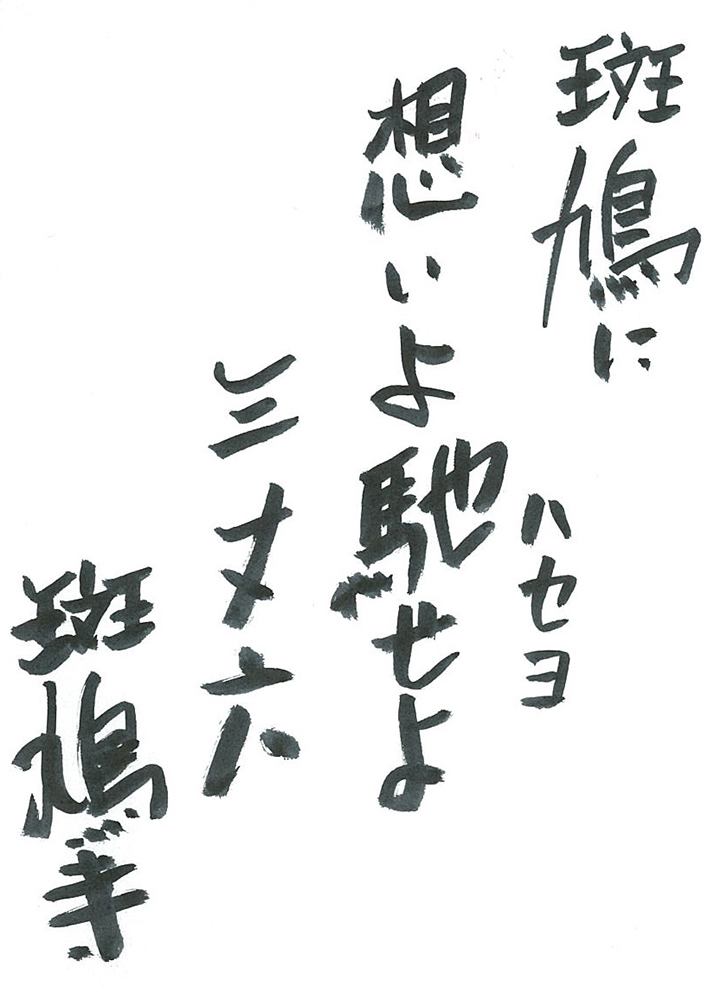 斑鳩に
ハセヨ
想いよ馳せよ
三丈六
斑鳩寺